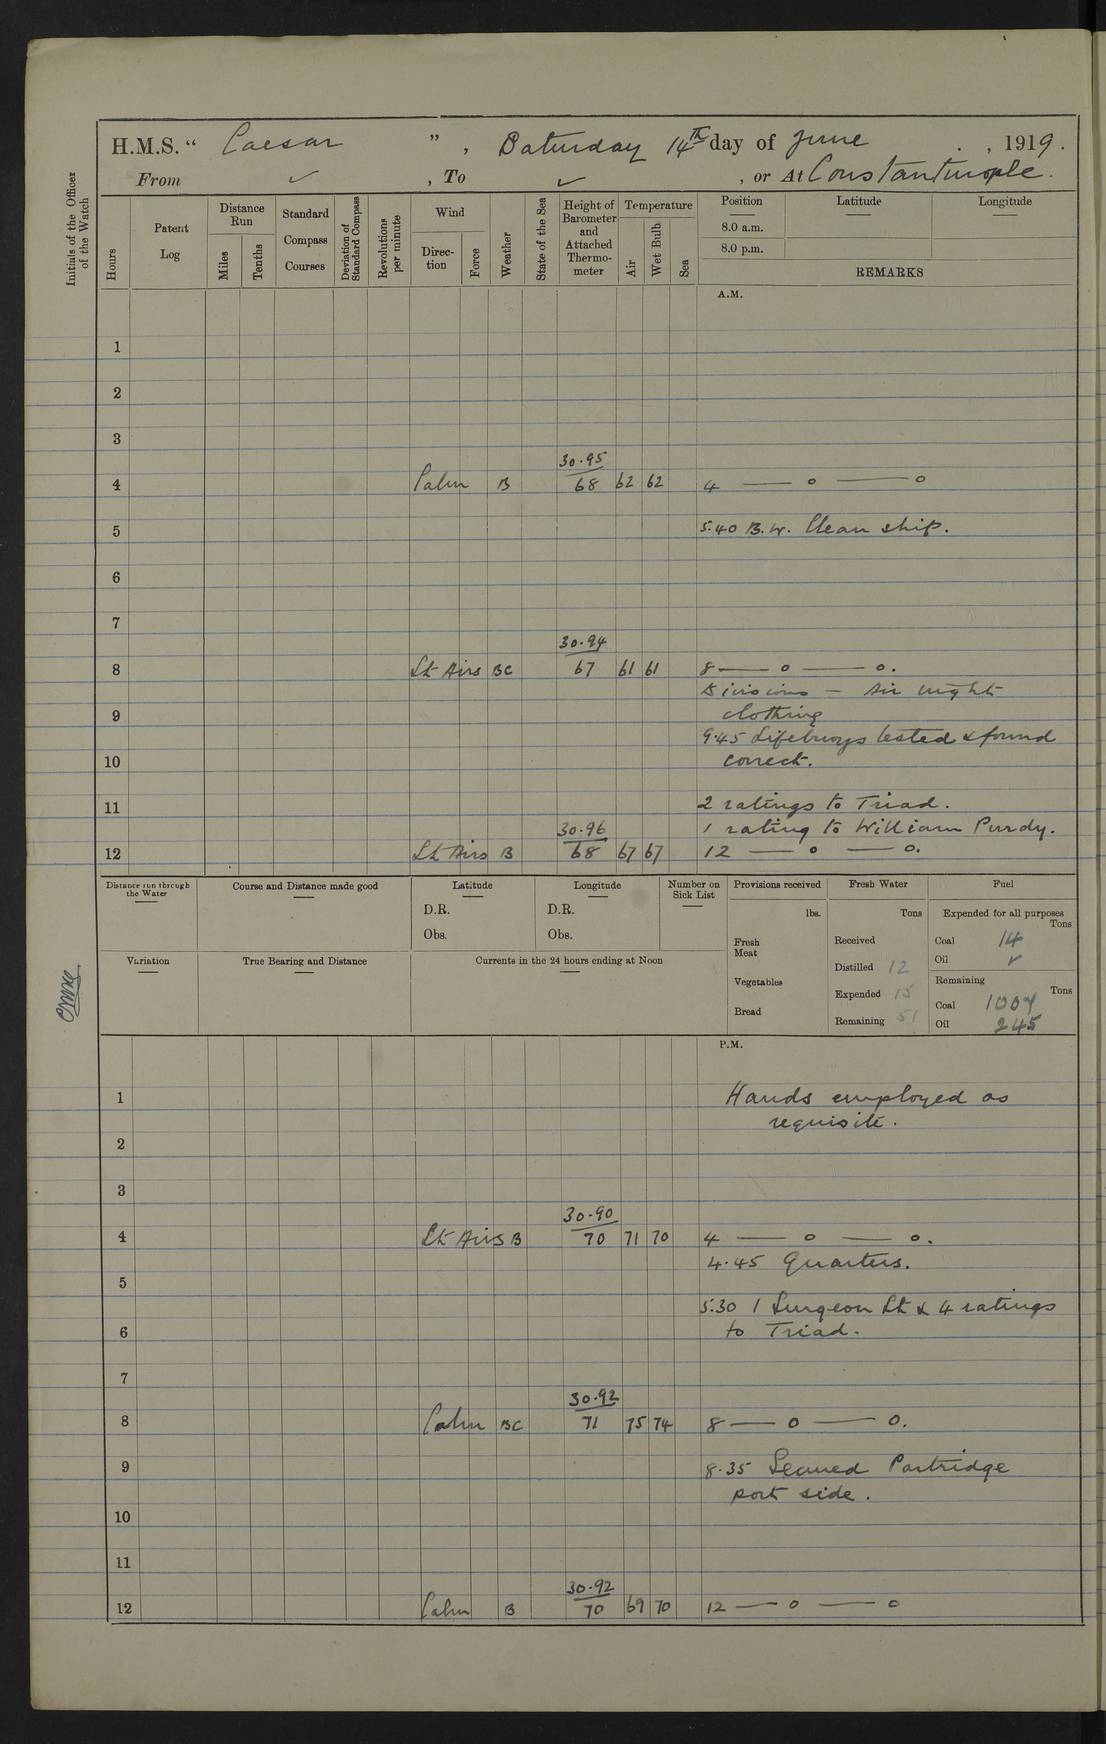 H.M.S. “ Caesar ” , Saturday 14th day of June , 1919.
From ✓ , To ✓ , or At Constantinople.
Initials of the Officer of the Watch
Hours
Patent Log
Distance Run
Miles
Tenths
Standard Compass Courses
Deviation of Standard Compass
Revolutions per minute
Wind
Direction
Force
Weather
State of the Sea
Height of Barometer and Attached Thermometer
Temperature
Air
Wet Bulb
Sea
Position
Latitude
Longitude
8.0 a.m.
8.0 p.m.
REMARKS
A.M.
1
2
3
30.95
4 Calm B 68 62 62 4 — o — o
5 5.40 B.W. Clean ship.
6
7
30.94
8 Lt Airs BC 67 61 61 8 — o — o.
Divisions — Air night
9 clothing
9.45 Lifebuoys tested & found
10 correct.
11 2 ratings to Triad.
30.96 1 rating to William Purdy.
12 Lt Airs B 68 67 67 12 — o — o.
Distance run through the Water
Course and Distance made good
Latitude
D.R.
Obs.
Longitude
D.R.
Obs.
Number on Sick List
Provisions received
lbs.
Fresh Meat
Vegetables
Bread
Fresh Water
Tons
Received
Distilled 12
Expended 15
Remaining 51
Fuel
Expended for all purposes
Tons
Coal 14
Oil ✓
Remaining
Tons
Coal 1007
Oil 245
Variation
True Bearing and Distance
Currents in the 24 hours ending at Noon
P.M.
1 Hands employed as
requisite.
2
3
30.90
4 Lt Airs B 70 71 70 4 — o — o.
4.45 Quarters.
5
5.30 1 Surgeon Lt & 4 ratings
6 to Triad.
7
30.92
8 Calm BC 71 75 74 8 — o — o.
9 8.35 Secured Partridge
port side.
10
11
30.92
12 Calm B 70 69 70 12 — o — o